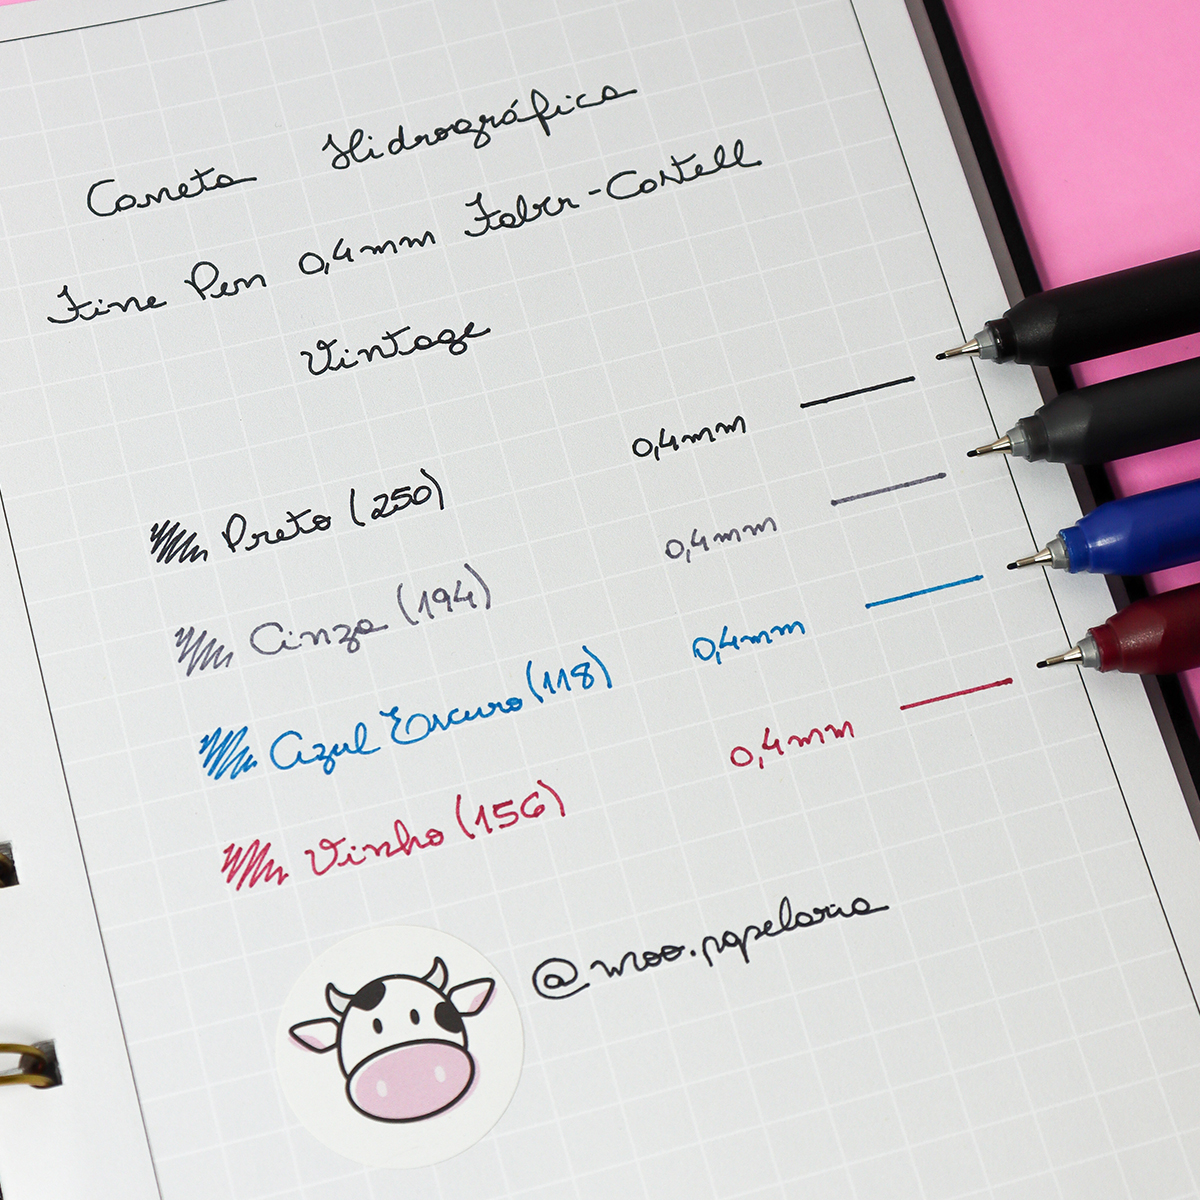 Caneta Hidrográfica
Fine Pen 0,4mm Faber-Castell
Vintage
Preto (250) 0,4mm
Cinza (194) 0,4mm
Azul Escuro (118) 0,4mm
Vinho (156) 0,4mm
@moo.papelaria